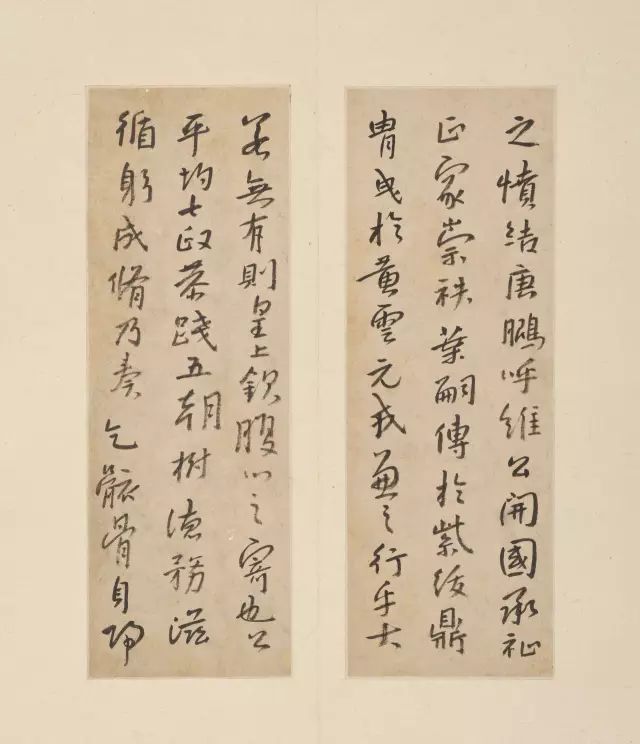 之憤結唐鵬呼維公開國承祉
正家崇秩葉嗣傳於紫綬鼎
胄或於黃雲元戎兼之行乎大
若無有則皇上欽腹心之寄也公
平均七政踐五朝樹德務滋
循躬成脩乃奏乞骸骨自歸